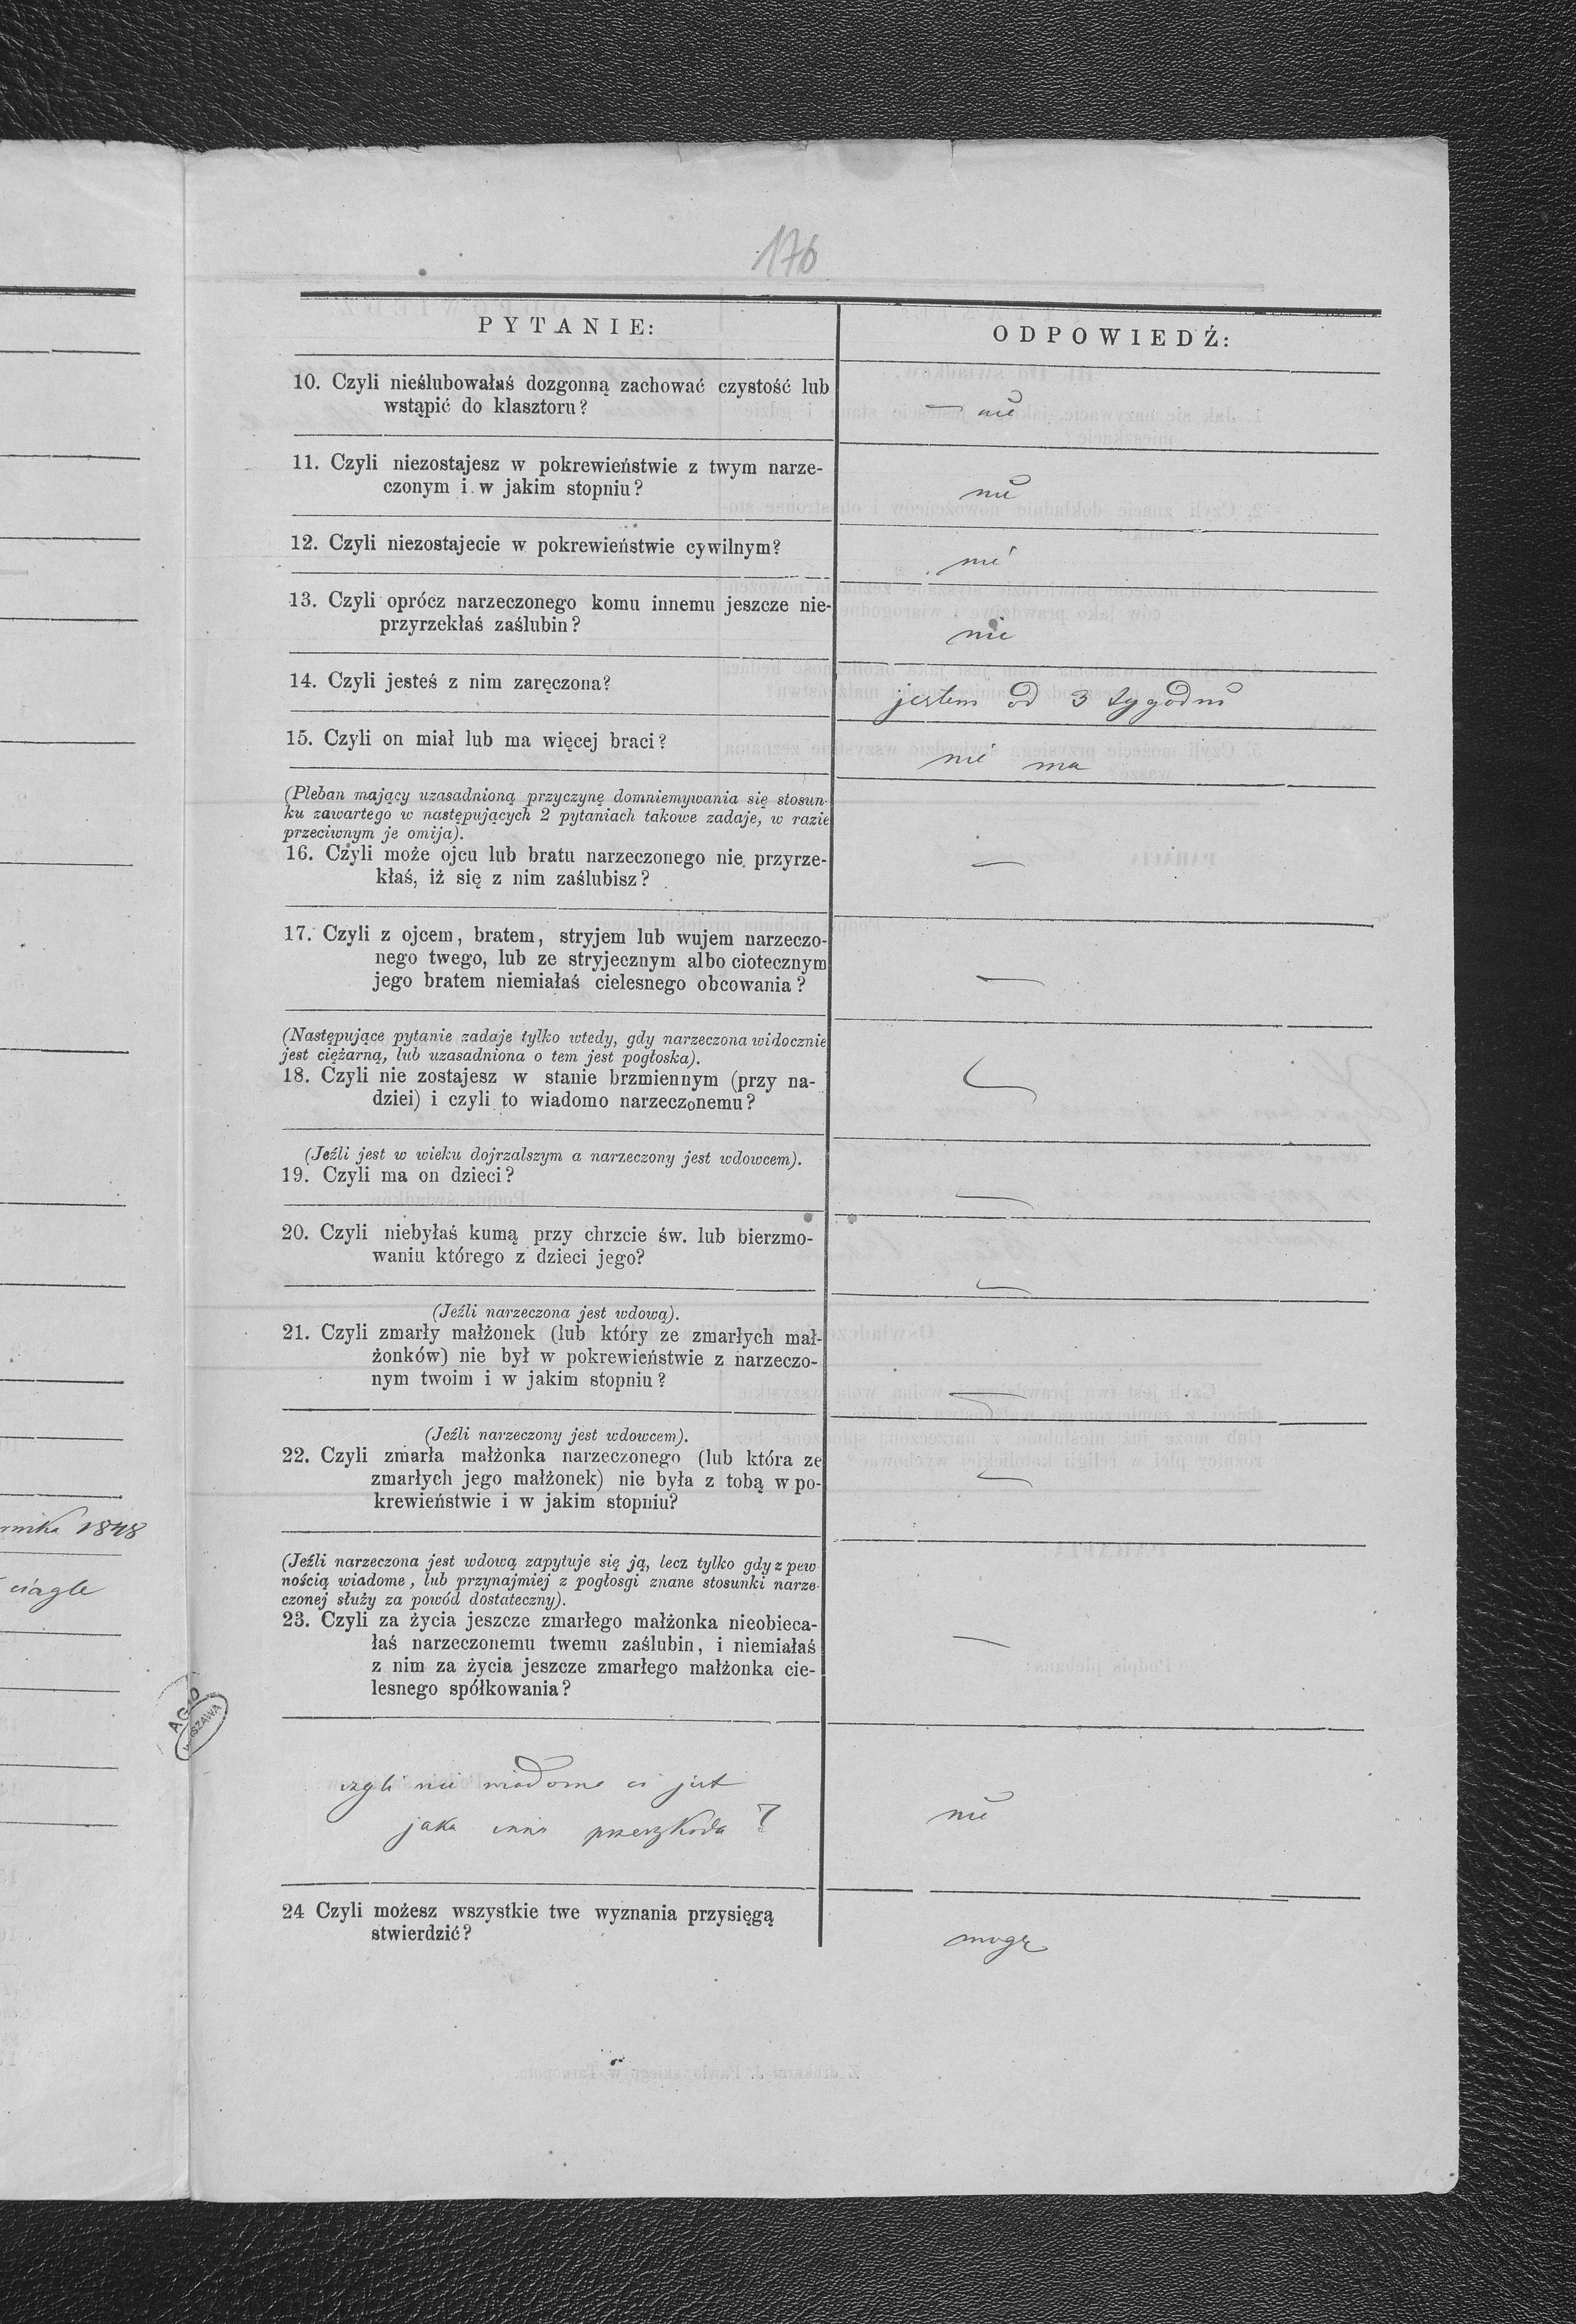 176
PYTANIE:
ODPOWIEDŹ:
10. Czyli nieślubowałaś dozgonną zachować czystość lub
wstąpić do klasztoru?
— nie
11. Czyli niezostajesz w pokrewieństwie z twym narze-
czonym i w jakim stopniu?
nie
12. Czyli niezostajecie w pokrewieństwie cywilnym?
nie
13. Czyli oprócz narzeczonego komu innemu jeszcze nie-
przyrzekłaś zaślubin?
nie
14. Czyli jesteś z nim zaręczona?
jestem od 3 tygodni
15. Czyli on miał lub ma więcej braci?
nie ma
(Pleban mający uzasadnioną przyczynę domniemywania się stosun-
ku zawartego w następujących 2 pytaniach takowe zadaje, w razie
przeciwnym je omija).
16. Czyli może ojcu lub bratu narzeczonego nie przyrze-
kłaś, iż się z nim zaślubisz?
—
17. Czyli z ojcem, bratem, stryjem lub wujem narzeczo-
nego twego, lub ze stryjecznym albo ciotecznym
jego bratem niemiałaś cielesnego obcowania?
—
(Następujące pytanie zadaje tylko wtedy, gdy narzeczona widocznie
jest ciężarną, lub uzasadniona o tem jest pogłoska).
18. Czyli nie zostajesz w stanie brzmiennym (przy na-
dziei) i czyli to wiadomo narzeczonemu?
—
(Jeźli jest w wieku dojrzalszym a narzeczony jest wdowcem).
19. Czyli ma on dzieci?
—
20. Czyli niebyłaś kumą przy chrzcie św. lub bierzmo-
waniu którego z dzieci jego?
—
(Jeźli narzeczona jest wdową).
21. Czyli zmarły małżonek (lub który ze zmarłych mał-
żonków) nie był w pokrewieństwie z narzeczo-
nym twoim i w jakim stopniu?
—
(Jeźli narzeczony jest wdowcem).
22. Czyli zmarła małżonka narzeczonego (lub która ze
zmarłych jego małżonek) nie była z tobą w po-
krewieństwie i w jakim stopniu?
—
(Jeźli narzeczona jest wdową zapytuje się ją, lecz tylko gdy z pew
nością wiadome, lub przynajmiej z pogłosgi znane stosunki narze-
czonej służy za powód dostateczny).
23. Czyli za życia jeszcze zmarłego małżonka nieobieca-
łaś narzeczonemu twemu zaślubin, i niemiałaś
z nim za życia jeszcze zmarłego małżonka cie-
lesnego spółkowania?
—
czyli nie wiadoma ci jest
jaka inna przeszkoda?
nie
24 Czyli możesz wszystkie twe wyznania przysięgą
stwierdzić?
mogę
1848
ciągle